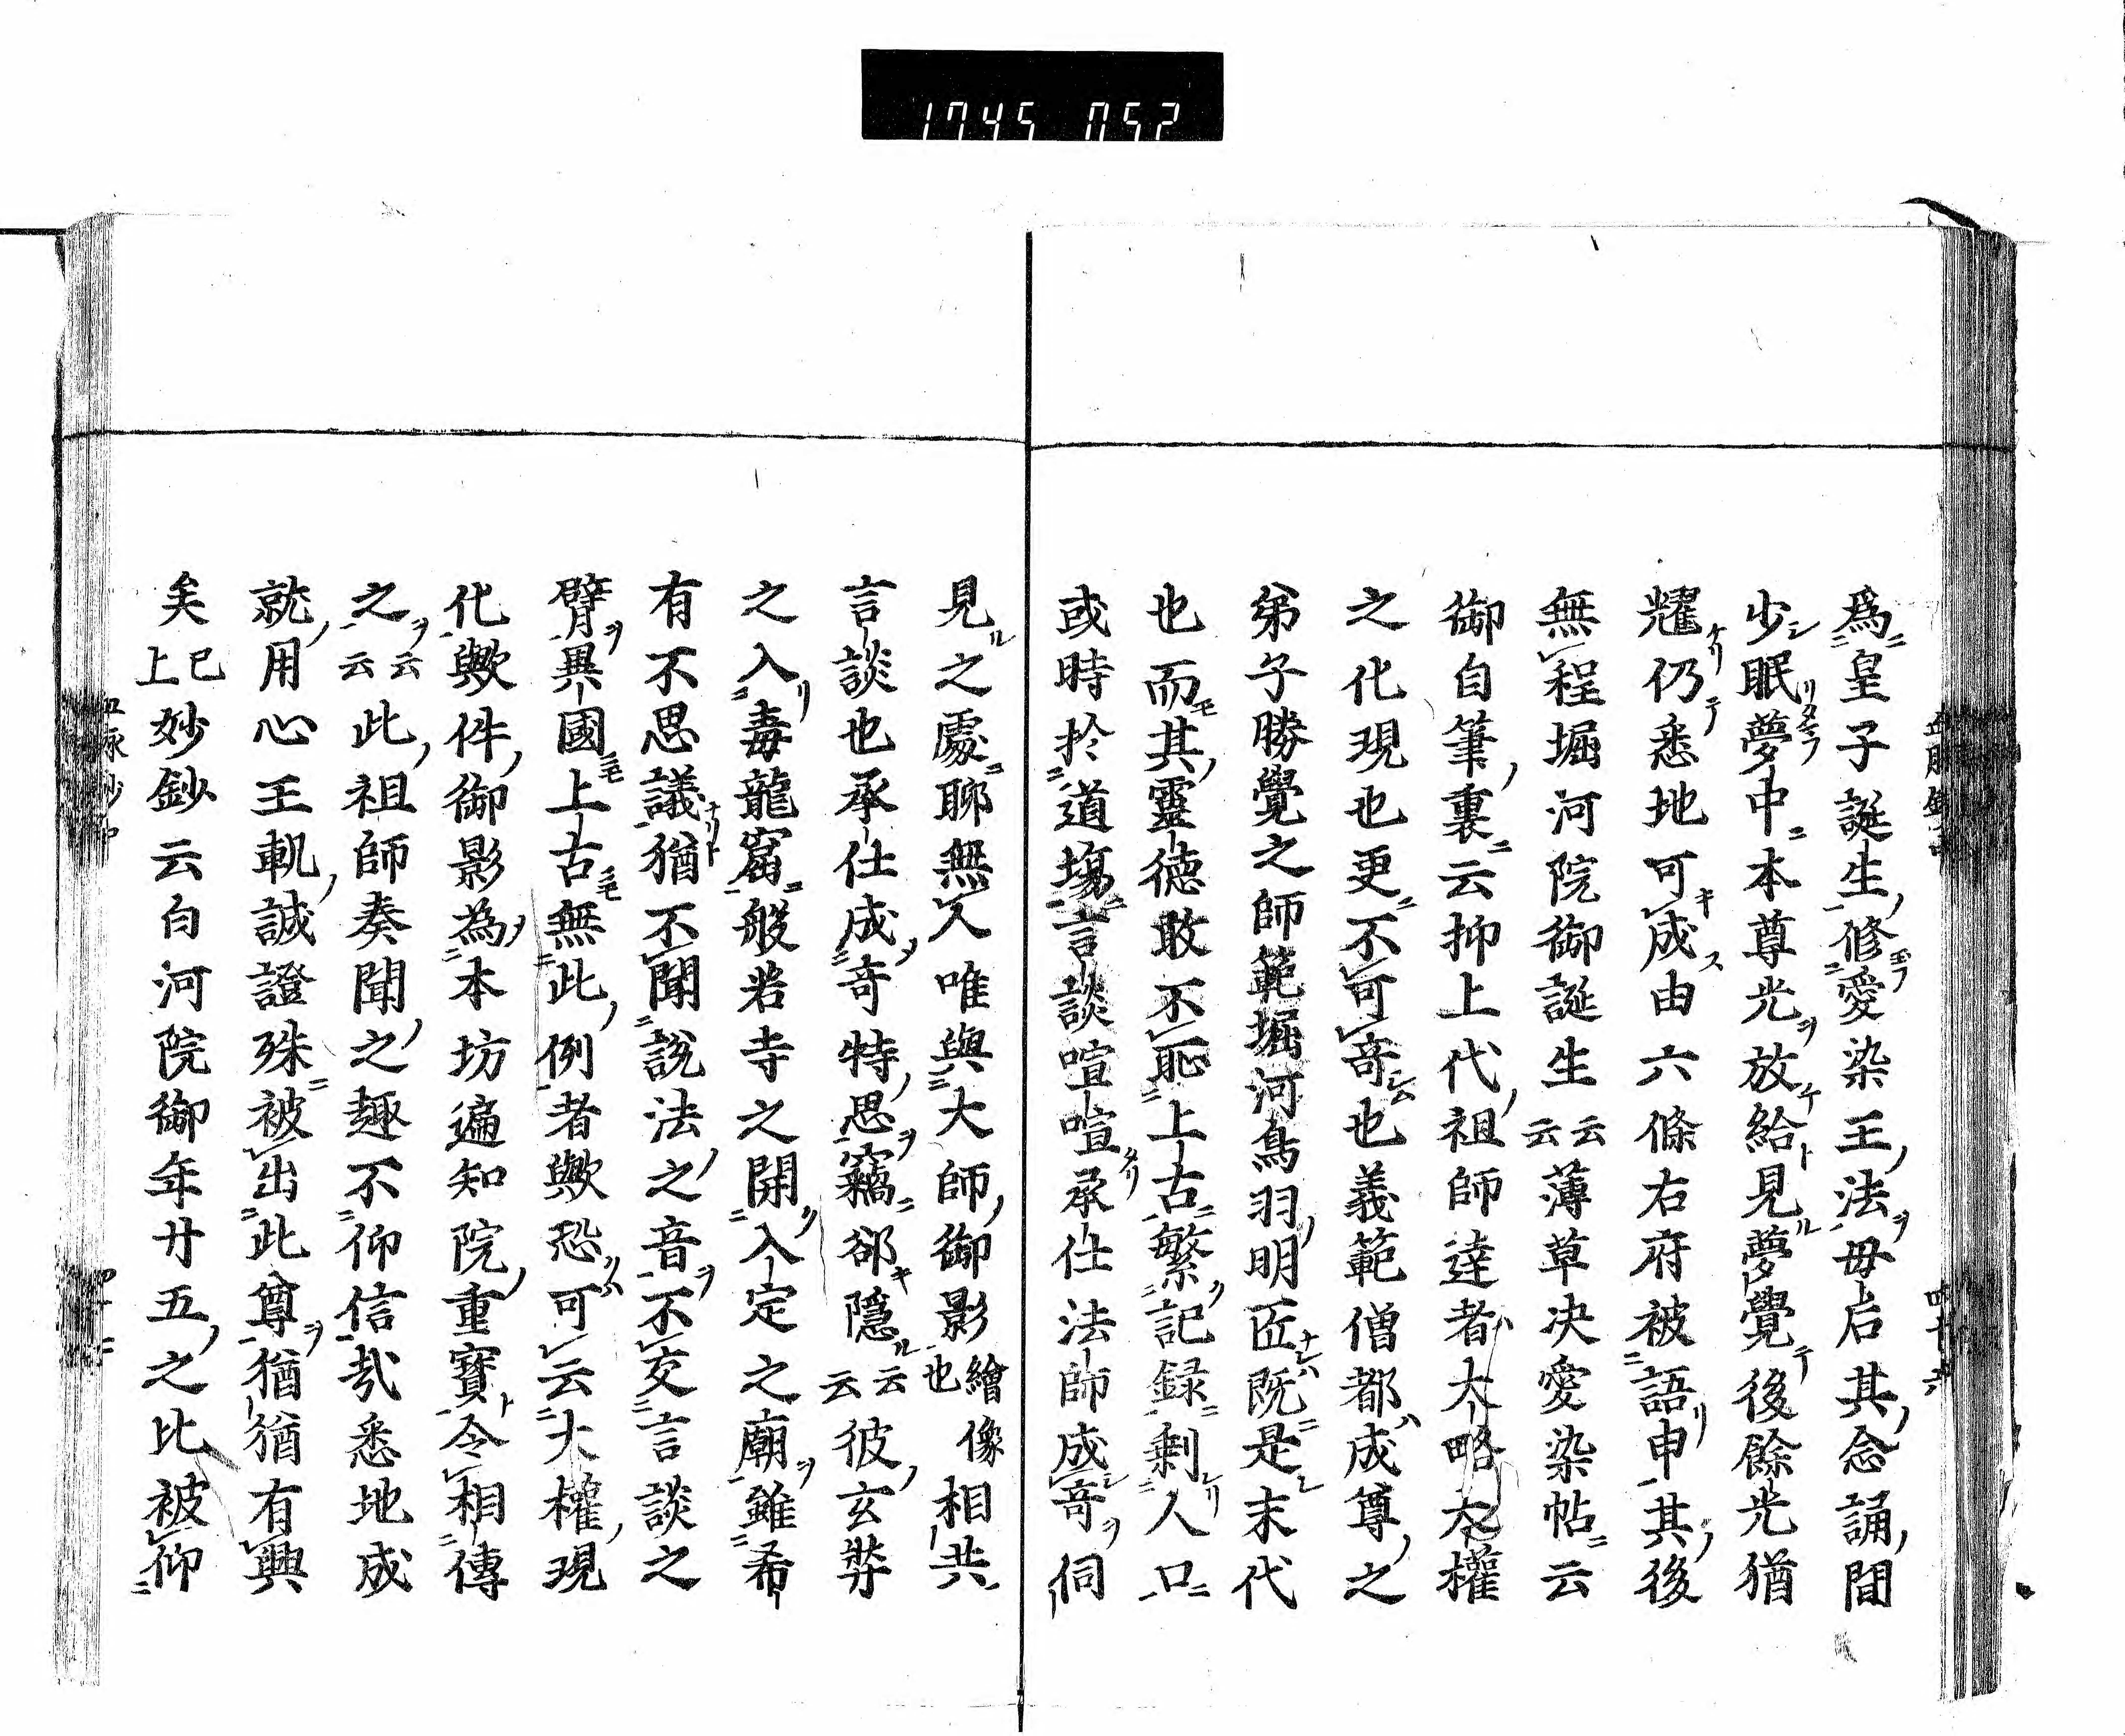 1745 052
爲皇子誕生修愛染王法毋后其念誦間
少眠夢中本尊光放給見夢覺後餘光猶
耀仍悉地可成由六條右府被語申其後
無程堀河院御誕生云云薄草决愛染帖云
御自筆裏云抑上代祖師達者大略大權
之化現也更不可奇也義範僧都成尊之
弟子勝覺之師範堀河鳥羽明匠既是末代
也而其靈德敢不恥上古繁記録剩人口
或時於道塲言談喧喧承仕法師成奇伺
見之處聊無人唯與大師御影繪像也相共
言談也承仕成奇特思竊郤隱云云彼玄弉
之入毒龍窟般若寺之開入定之廟雖希
有不思議猶不聞說法之音不交言談之
臂異國上古無此例者歟恐可云大權現
化歟件御影為本坊遍知院重寶令相傳
之云云此祖師奏聞之趣不仰信哉悉地成
就用心王軌誠證殊被出此尊猶猶有興
矣已上妙鈔云白河院御年廿五之比被仰